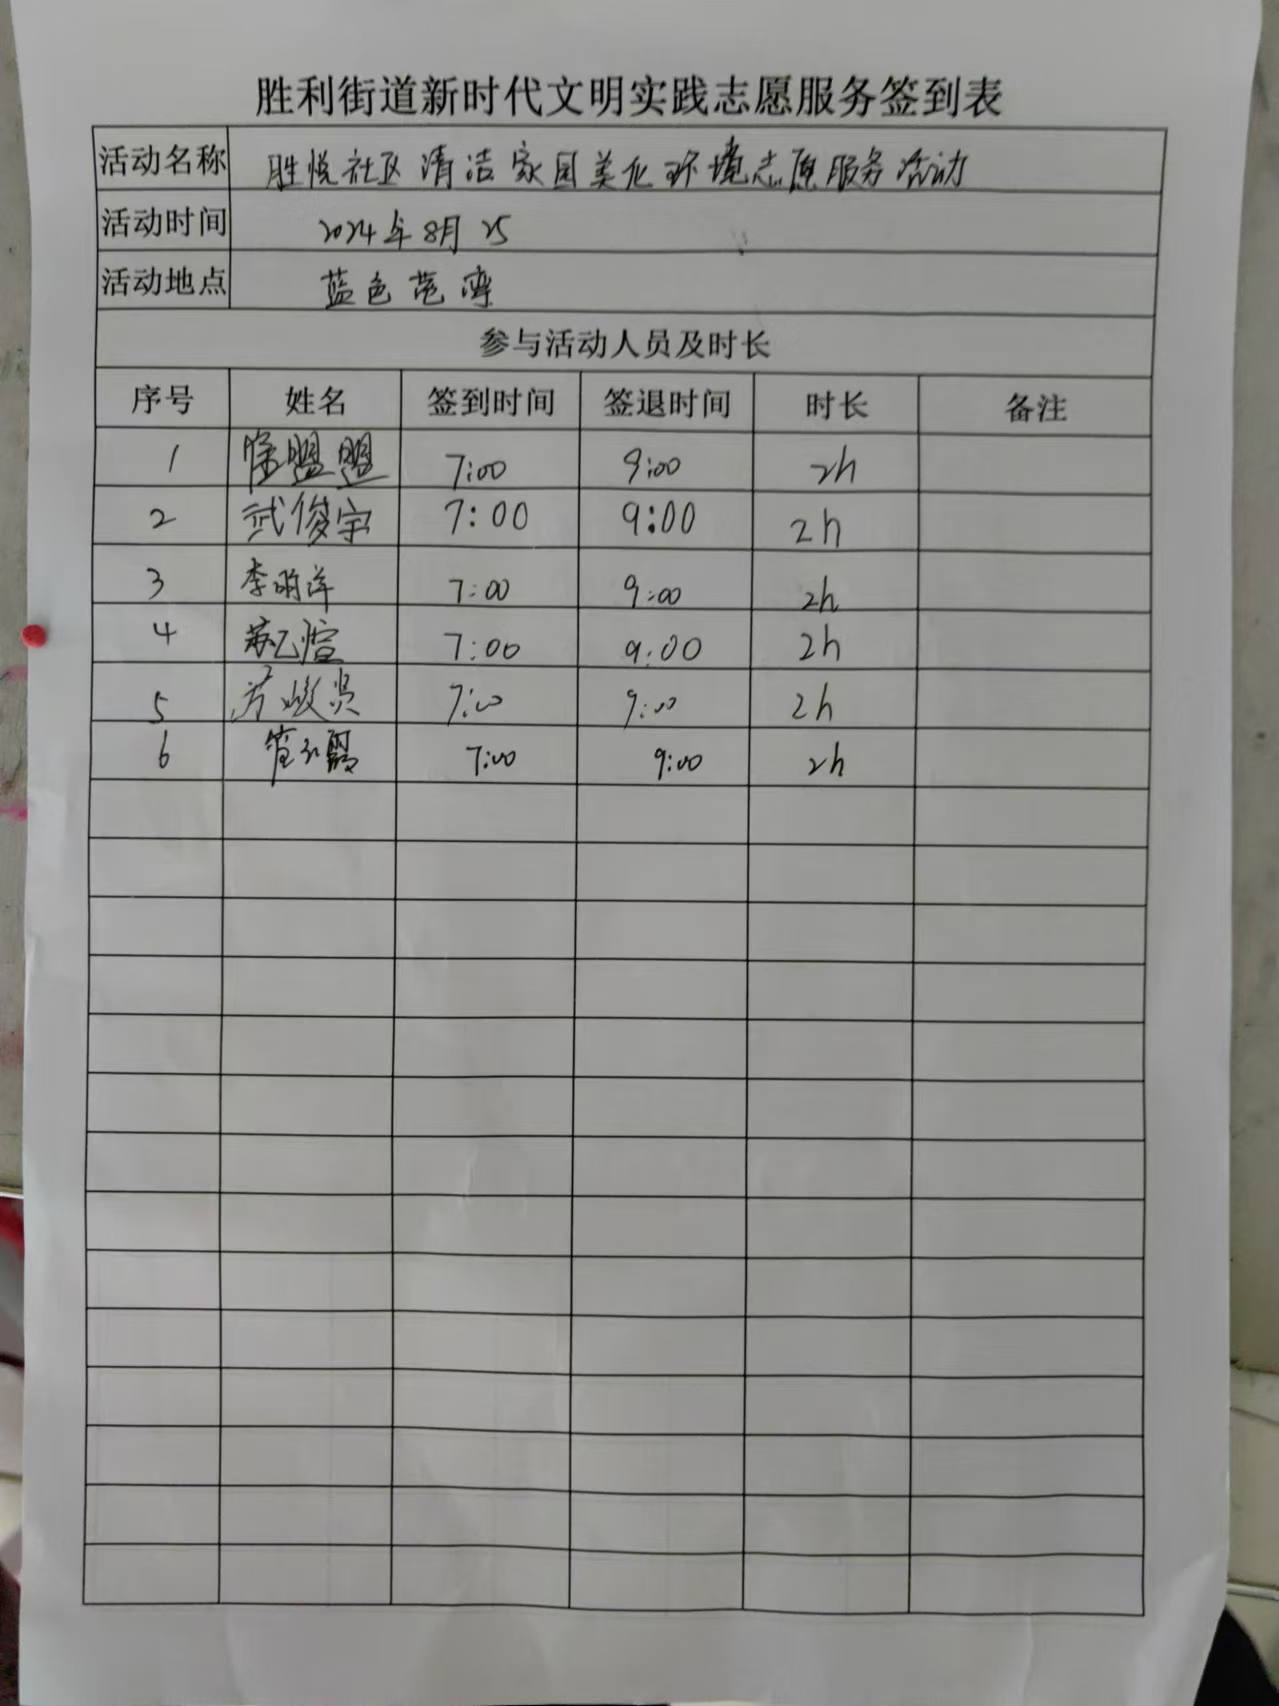 胜利街道新时代文明实践志愿服务签到表
活动名称 胜悦社区清洁家园美化环境志愿服务活动
活动时间 2024年8月25
活动地点 蓝色范湾
参与活动人员及时长
序号 姓名 签到时间 签退时间 时长 备注
1 徐盟盟 7:00 9:00 2h
2 武俊宇 7:00 9:00 2h
3 李明洋 7:00 9:00 2h
4 7:00 9:00 2h
5 7:00 9:00 2h
6 7:00 9:00 2h